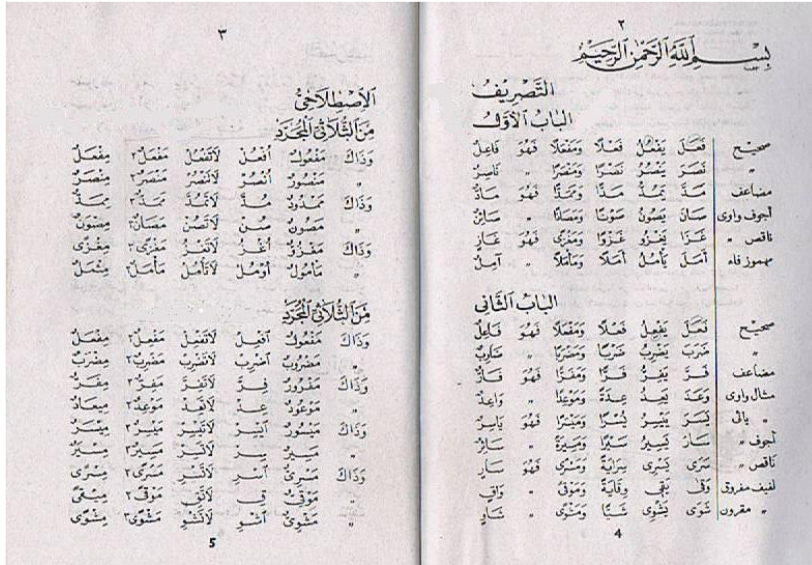 ٢
بِسْمِ اللهِ الرَّحْمٰنِ الرَّحِيْمِ
التَّصْرِيفُ
البَابُ الأَوَّلُ
صحيح فَعَلَ يَفْعُلُ فَعْلاً وَمَفْعَلاً فَهُوَ فَاعِلٌ
〃 نَصَرَ يَنْصُرُ نَصْرًا وَمَنْصَرًا 〃 نَاصِرٌ
مضاعف مَدَّ يَمُدُّ مَدًّا وَمَمَدًّا فَهُوَ مَادٌّ
أجوف واوى صَانَ يَصُونُ صَوْنًا وَمَصَانًا 〃 صَائِنٌ
ناقص 〃 غَزَا يَغْزُو غَزْوًا وَمَغْزًى فَهُوَ غَازٍ
مهموز فاء أَمَلَ يَأْمُلُ أَمَلاً وَمَأْمَلاً 〃 آمِلٌ
البَابُ الثَّانِى
صحيح فَعَلَ يَفْعِلُ فَعْلاً وَمَفْعَلاً فَهُوَ فَاعِلٌ
〃 ضَرَبَ يَضْرِبُ ضَرْبًا وَمَضْرَبًا 〃 ضَارِبٌ
مضاعف فَرَّ يَفِرُّ فَرًّا وَمَفَرًّا فَهُوَ فَارٌّ
مثال واوى وَعَدَ يَعِدُ عِدَةً وَمَوْعِدًا 〃 وَاعِدٌ
〃 يائى يَسَرَ يَيْسِرُ يُسْرًا وَمَيْسِرًا فَهُوَ يَاسِرٌ
أجوف 〃 سَارَ يَسِيرُ سَيْرًا وَمَسِيرَةً 〃 سَائِرٌ
ناقص 〃 سَرَى يَسْرِى سِرَايَةً وَمَسْرًى فَهُوَ سَارٍ
لفيف مفروق وَقَى يَقِى وِقَايَةً وَمَوْقًى 〃 وَاقٍ
〃 مقرون شَوَى يَشْوِى شَيًّا 〃 شَاوٍ
4
٣
الاِصْطِلَاحِىُّ
مِنَ الثُّلَاثِىِّ المُجَرَّدِ
وَذَاكَ مَفْعُولٌ اُفْعُلْ لَاتَفْعُلْ مَفْعَلٌ٢ مِفْعَلٌ
〃 مَنْصُورٌ اُنْصُرْ لَاتَنْصُرْ مَنْصَرٌ٢ مِنْصَرٌ
وَذَاكَ مَمْدُودٌ مُدَّ لَاتَمُدَّ مَمَدٌّ٢ مِمَدٌّ
〃 مَصُونٌ صُنْ لَاتَصُنْ مَصَانٌ٢ مِصْوَنٌ
وَذَاكَ مَغْزُوٌّ اُغْزُ لَاتَغْزُ مَغْزًى٢ مِغْزًى
〃 مَأْمُولٌ اُوْمُلْ لَاتَأْمُلْ مَأْمَلٌ٢ مِئْمَلٌ
مِنَ الثُّلَاثِىِّ المُجَرَّدِ
وَذَاكَ مَفْعُولٌ اِفْعِلْ لَاتَفْعِلْ مَفْعِلٌ٢ مِفْعَلٌ
〃 مَضْرُوبٌ اِضْرِبْ لَاتَضْرِبْ مَضْرِبٌ٢ مِضْرَبٌ
وَذَاكَ مَفْرُورٌ فِرَّ لَاتَفِرَّ مَفِرٌّ٢ مِفَرٌّ
〃 مَوْعُودٌ عِدْ لَاتَعِدْ مَوْعِدٌ٢ مِيعَادٌ
وَذَاكَ مَيْسُورٌ اِيْسِرْ لَاتَيْسِرْ مَيْسِرٌ٢ مِيْسَرٌ
〃 مَسِيرٌ سِرْ لَاتَسِرْ مَسِيرٌ٢ مِسْيَرٌ
وَذَاكَ مَسْرِىٌّ اِسْرِ لَاتَسْرِ مَسْرًى٢ مِسْرًى
〃 مَوْقِىٌّ قِ لَاتَقِ مَوْقًى٢ مِيْقًى
〃 مَشْوِىٌّ اِشْوِ لَاتَشْوِ مَشْوًى٢ مِشْوًى
5